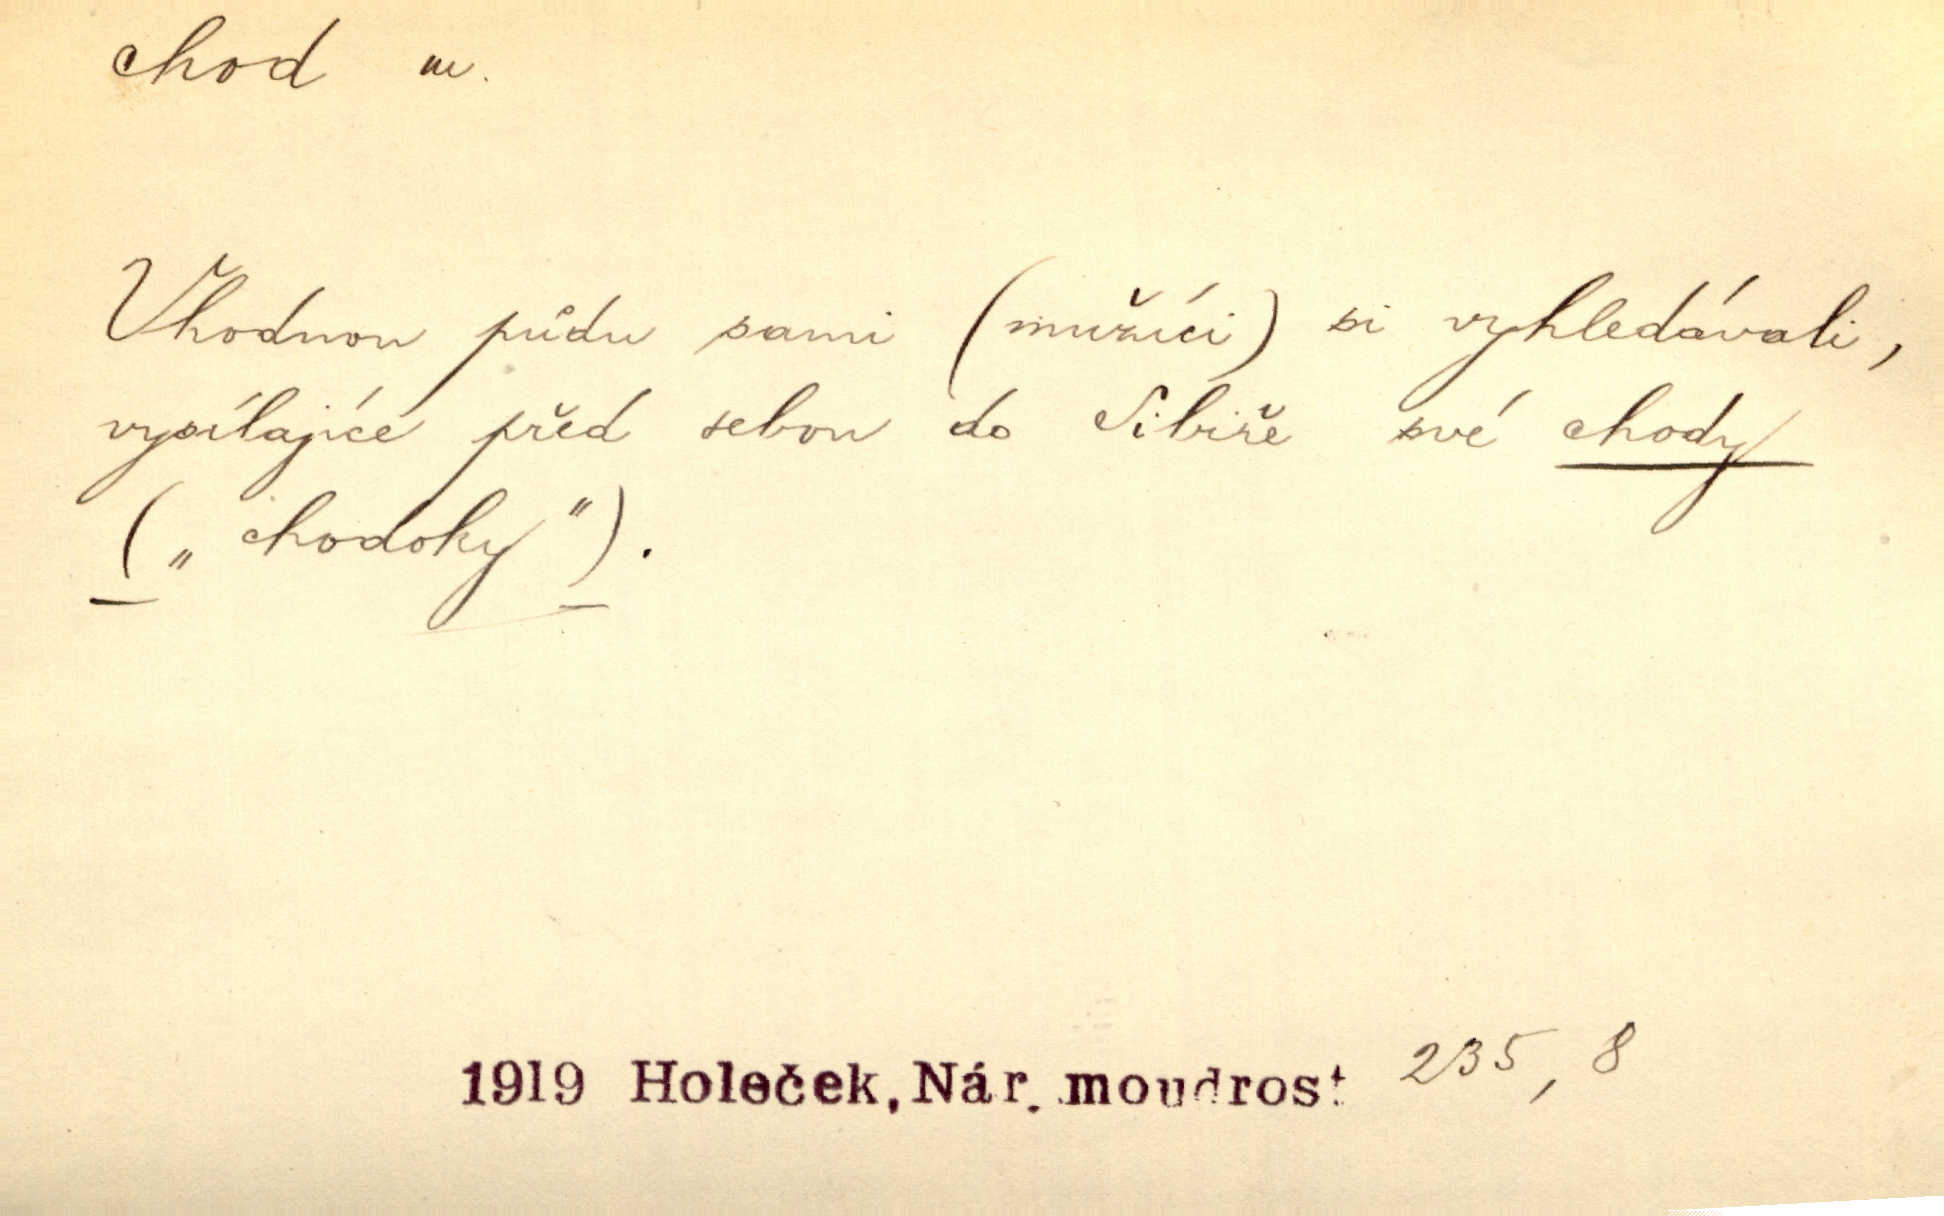 chod m.
Vhodnou půdu sami (mužíci) si vyhledávali,
vysílajíce před sebou do Sibiře své chody
(„chodoky").
1919 Holeček, Nár. moudrost 235, 8